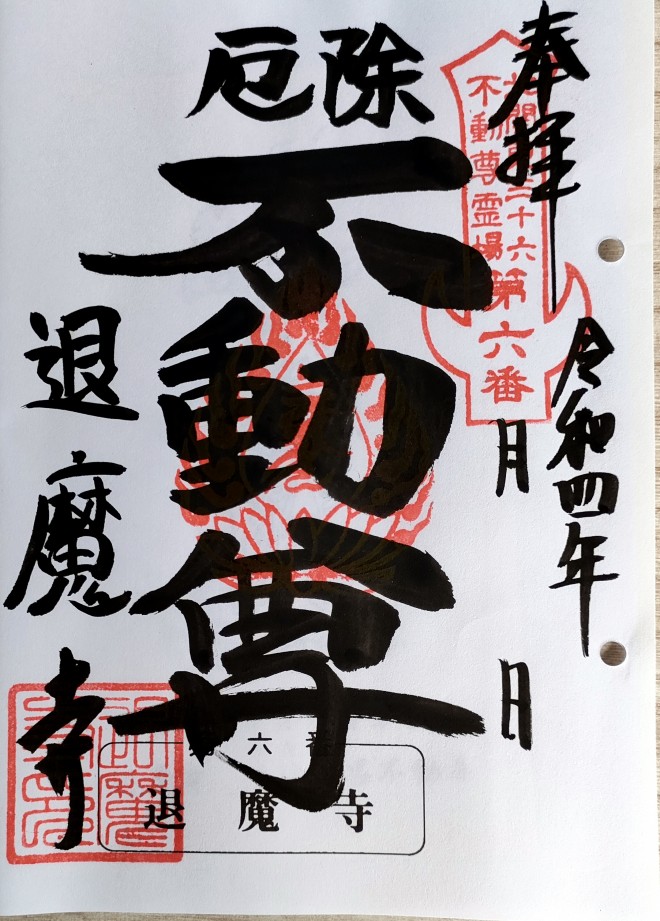 奉拝
北関東三十六
不動尊霊場
第六番
令和四年
月
日
厄除
不動尊
退魔寺
第六番
退魔寺